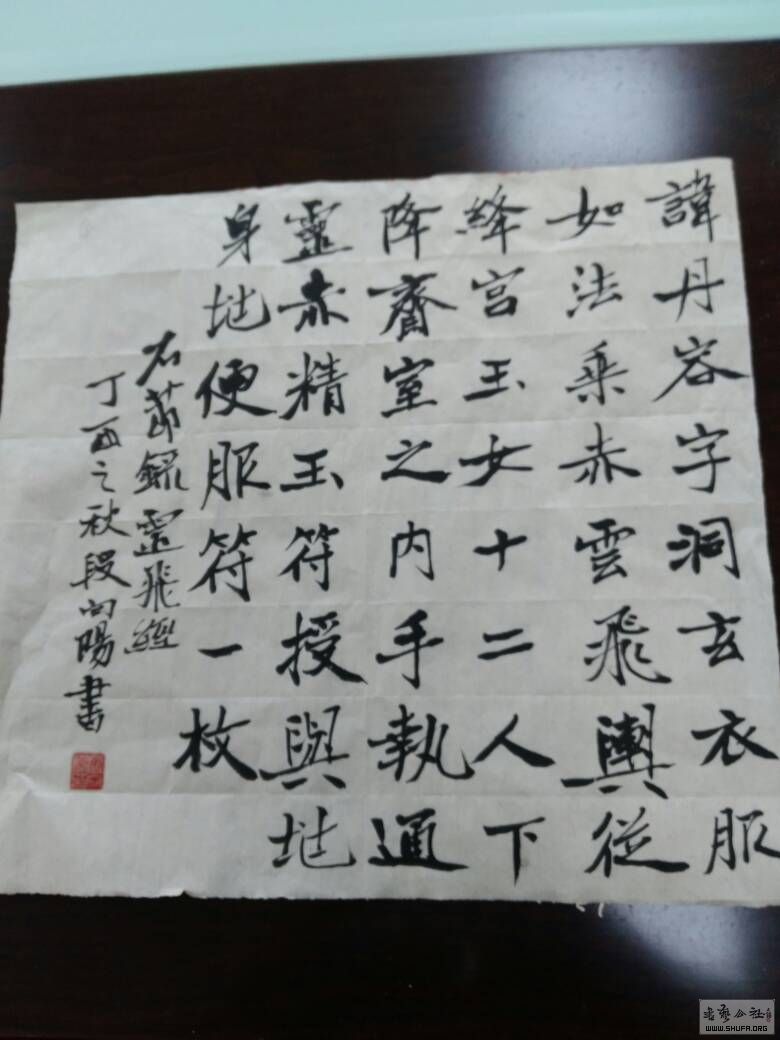 諱丹容字洞玄衣服
如法乘赤雲飛輿從
絳宮玉女十二人下
降齋室之内手執通
靈赤精玉符授與地
身地便服符一枚
右節錄靈飛經
丁酉之秋段向陽書
书艺公社
WWW.SHUFA.ORG